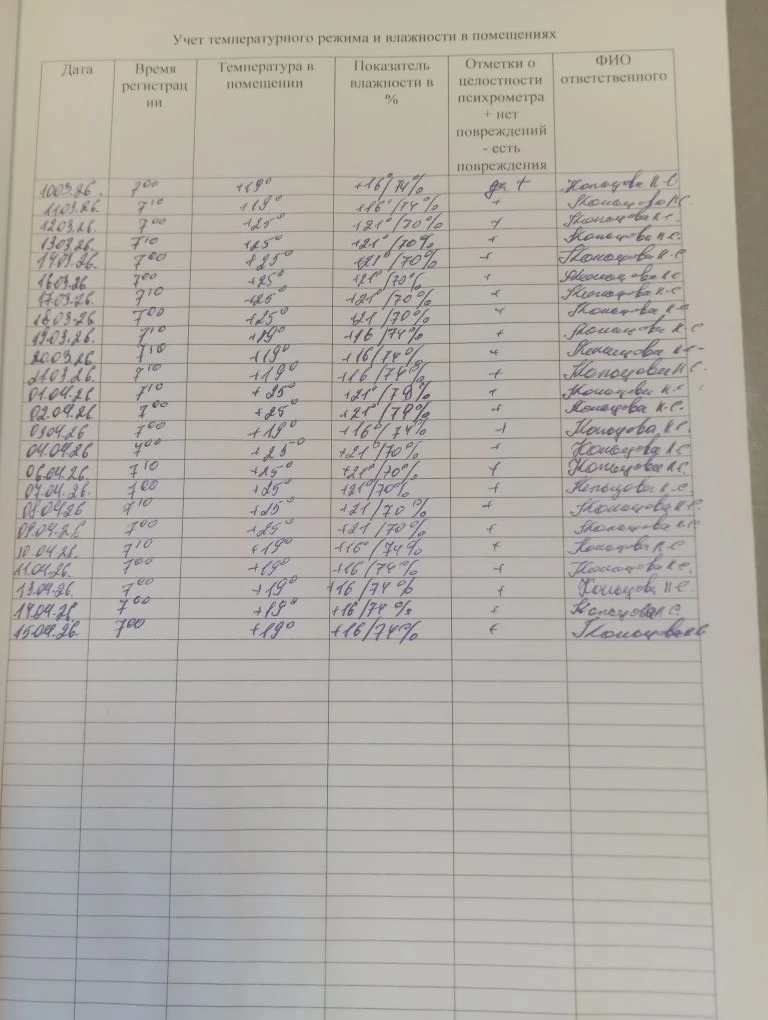 Учет температурного режима и влажности в помещениях
Дата | Время регистрац ии | Температура в помещении | Показатель влажности в % | Отметки о целостности психрометра + нет повреждений - есть повреждения | ФИО ответственного
10.03.26. 7⁰⁰ +19⁰ +16⁰/74% да + Копьцова Н.С
11.03.26. 7¹⁰ +19⁰ +16⁰/74% + Копьцова Н.С.
12.03.26. 7⁰⁰ +25⁰ +21⁰/70% + Копьцова Н.С.
13.03.26 7¹⁰ +25⁰ +21⁰/70% + Копьцова Н.С.
14.03.26. 7⁰⁰ +25⁰ +21⁰/70% + Копьцова Н.С.
16.03.26 7⁰⁰ +25⁰ +21⁰/70% + Копьцова Н.С
17.03.26. 7¹⁰ +25⁰ +21⁰/70% + Копьцова Н.С
18.03.26 7⁰⁰ +25⁰ +21/70% + Копьцова Н.С
19.03.26. 7¹⁰ +19⁰ +16/74% + Копьцова Н.С
20.03.26 7¹⁰ +19⁰ +16/74% + Копьцова Н.С
21.03.26. 7¹⁰ +19⁰ +16/74% + Копьцова Н.С.
01.04.26 7¹⁰ +25⁰ +21⁰/70% + Копьцова Н.С
02.04.26. 7⁰⁰ +25⁰ +21⁰/70% + Копьцова Н.С.
03.04.26 7⁰⁰ +19⁰ +16⁰/74% + Копьцова Н.С.
04.04.26 7⁰⁰ +25⁰ +21⁰/70% + Копьцова Н.С
06.04.26 7¹⁰ +25⁰ +21⁰/70% + Копьцова Н.С
07.04.26. 7⁰⁰ +25⁰ +21⁰/70% + Копьцова Н.С.
08.04.26 7¹⁰ +25⁰ +21/70% + Копьцова Н.С.
09.04.26 7⁰⁰ +25⁰ +21/70% + Копьцова Н.С
10.04.26. 7¹⁰ +19⁰ +16⁰/74% + Копьцова Н.С
11.04.26. 7⁰⁰ +19⁰ +16/74% + Копьцова Н.С.
13.04.26. 7⁰⁰ +19⁰ +16/74% + Копьцова Н.С
14.04.26. 7⁰⁰ +19⁰ +16/74% + Копьцова Н.С.
15.04.26. 7⁰⁰ +19⁰ +16/74% + Копьцова Н.С